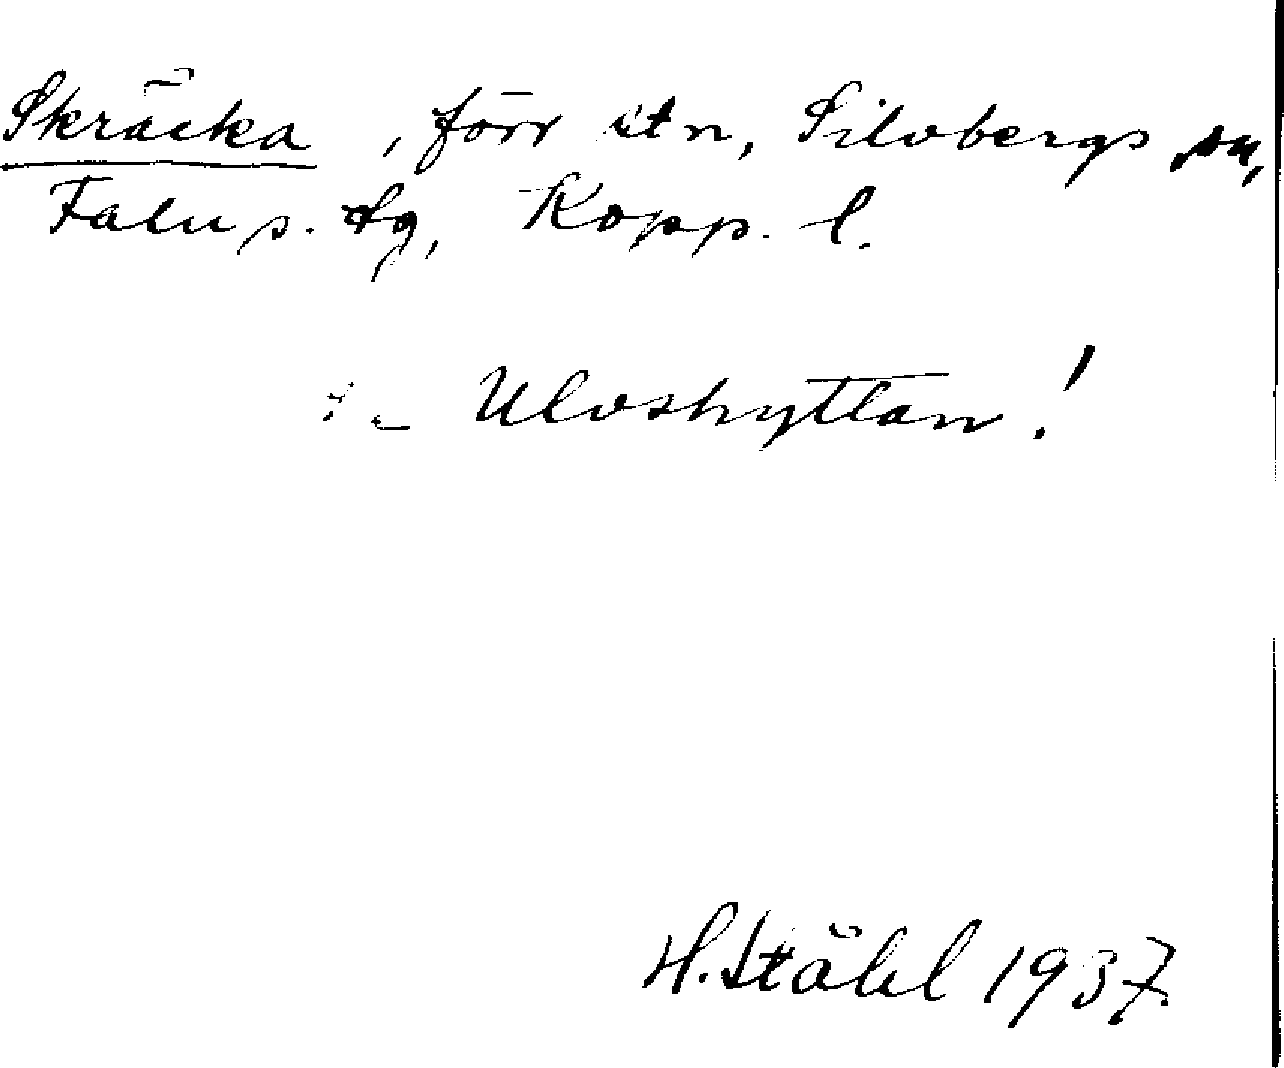 Skräcka, förr stn, Silvbergs sn,
Falu s. dg, Kopp. l.
Ulvshyttan!
H. Ståhl 1937.